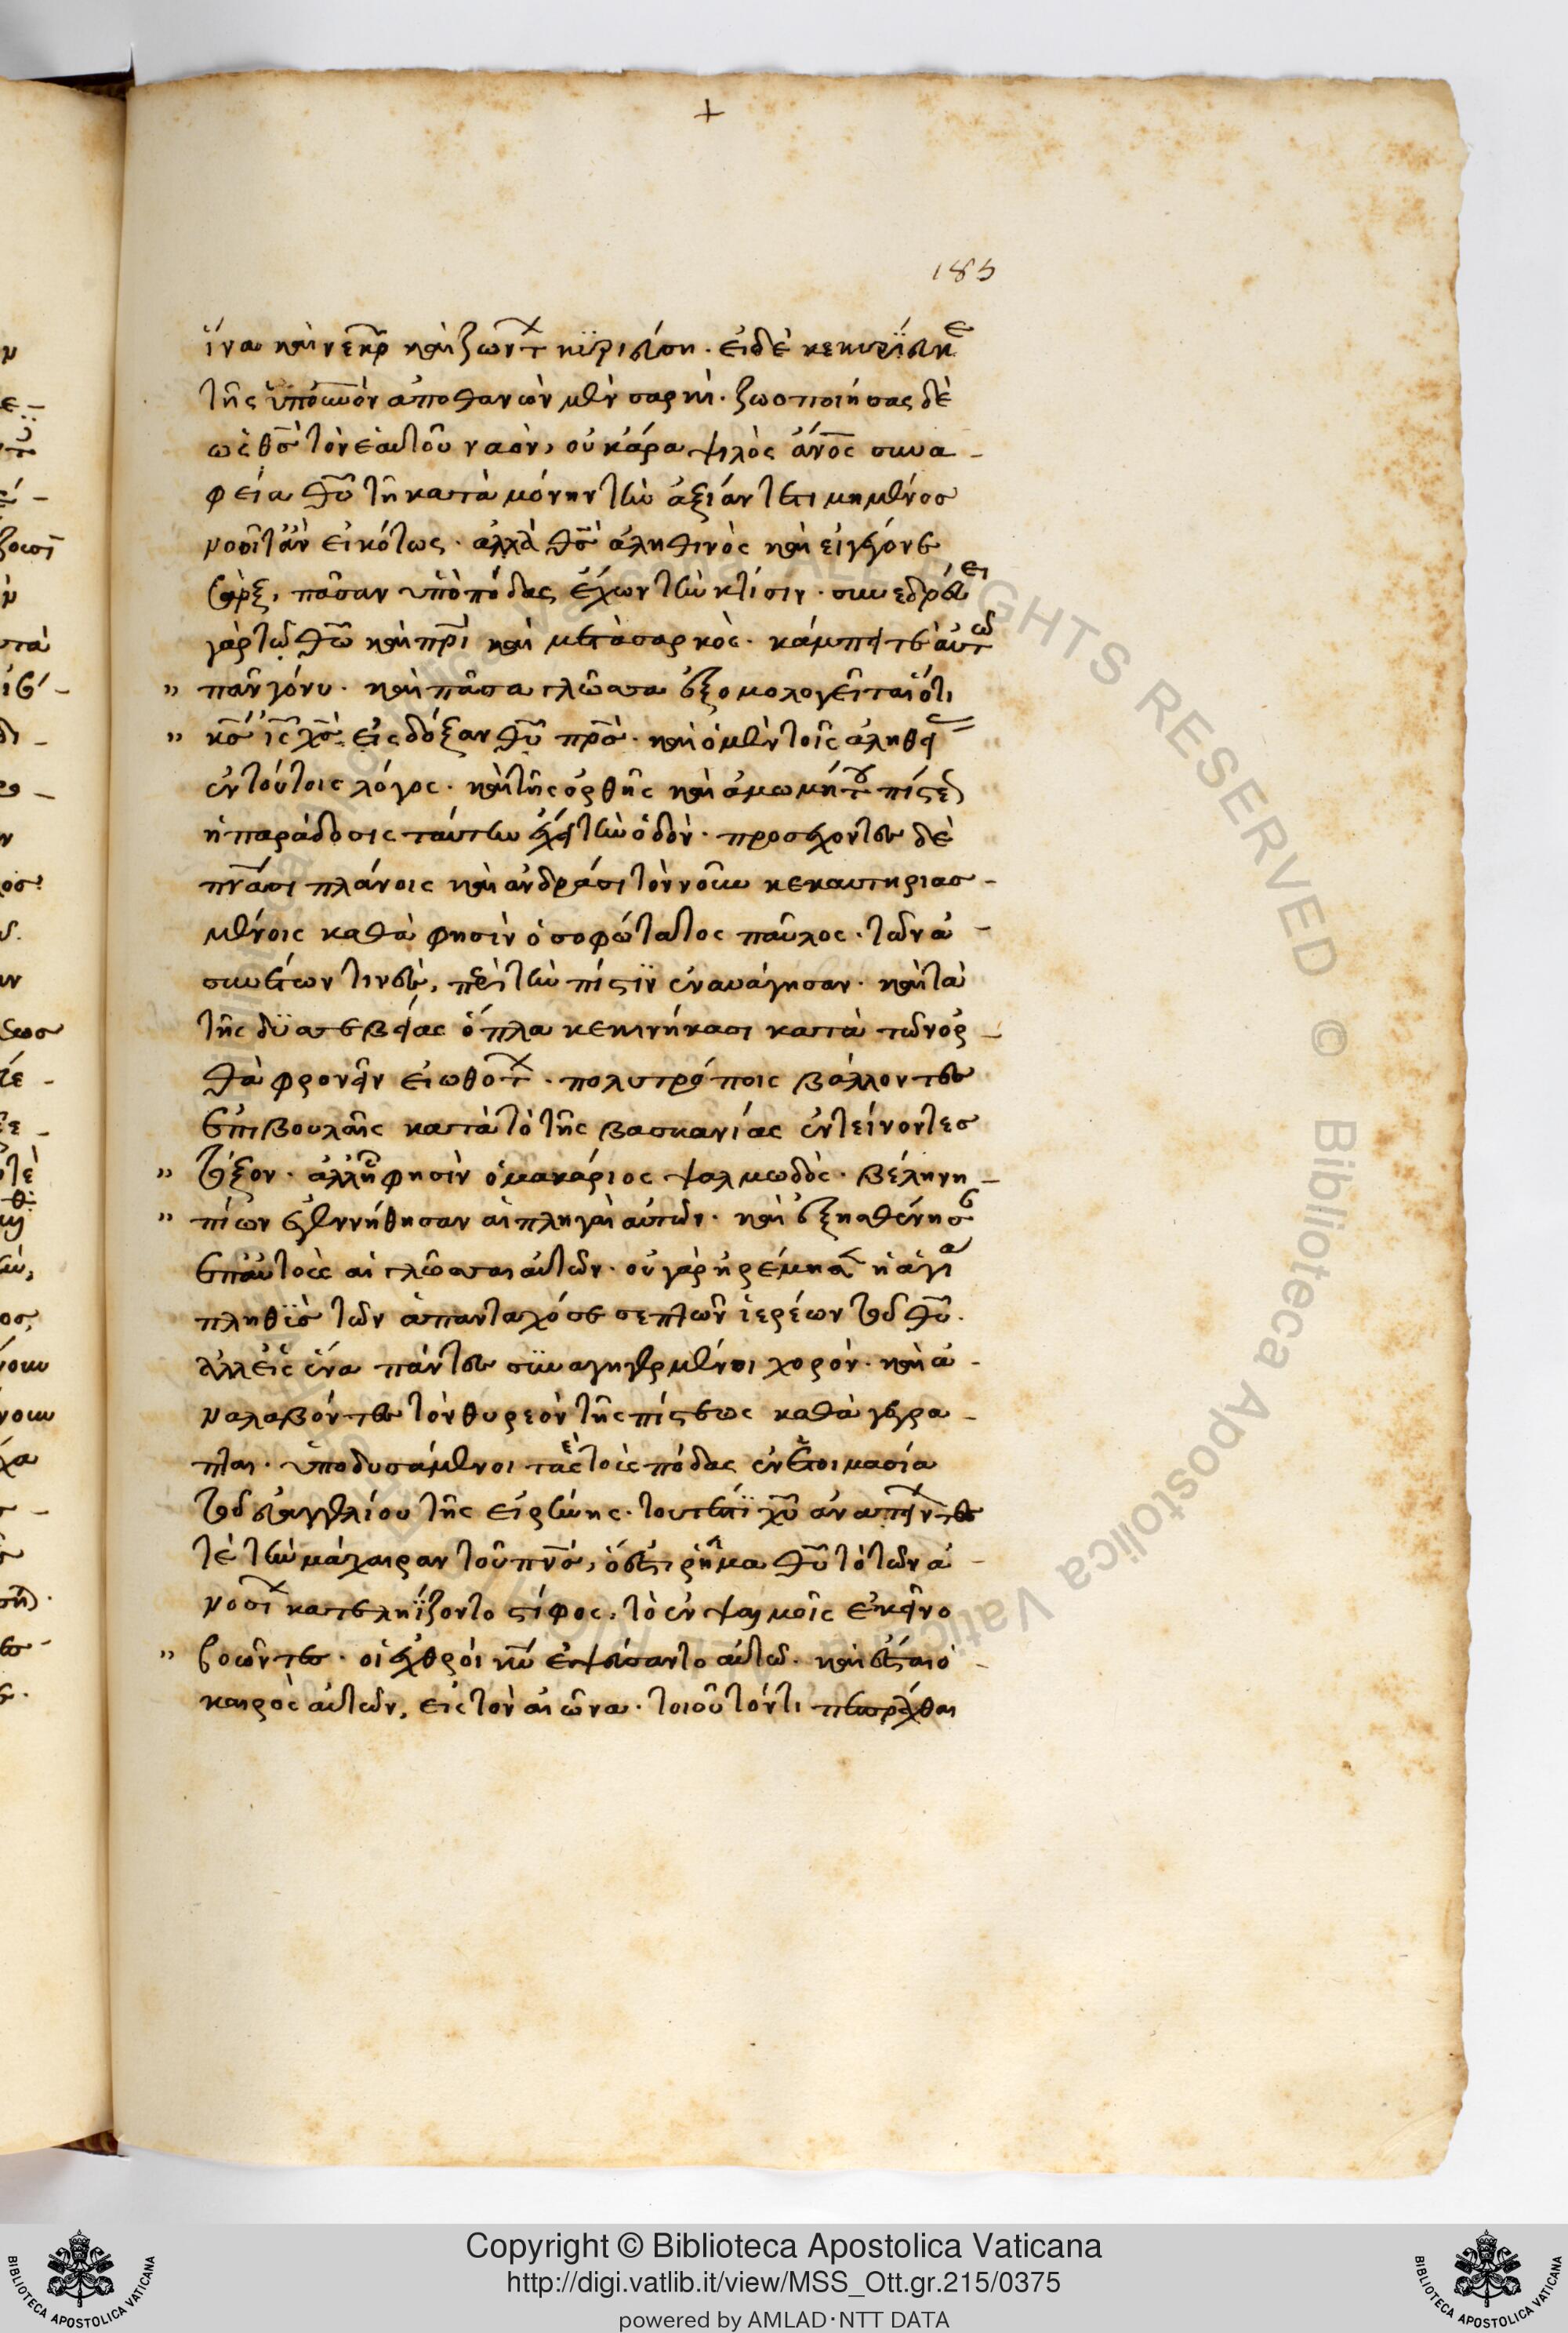 +
185
ἵνα καὶ νεκρ καὶ ζώντ κυριεύση. εἰ δὲ κεκυρίευκε
τῆς ὑπ' οὐνὸν ἀποθανὼν μὲν σαρκὶ. ζωοποιήσας δὲ
ὡς θς τὸν ἑαυτοῦ ναὸν, οὐκ ἄρα ψιλὸς ἄνος συνα-
φεία θυ τῆ κατὰ μόνην τὴν ἀξίαν τετιμημένος
νοοῖτ' ἂν εἰκότως. ἀλλὰ θς ἀληθινὸς καὶ εἰ γέγονε
σὰρξ, πᾶσαν ὑπὸ πόδας ἔχων τὴν κτίσιν. συνεδρεύει
γὰρ τῷ θω καὶ πρι καὶ μετὰ σαρκὸς. κάμπτει τε αὐτω
" πᾶν γόνυ. καὶ πᾶσα γλῶσσα ἐξομολογεῖται ὅτι
" κς ις χς εἰς δόξαν θυ πρς. καὶ ὁ μὲν τοῖς ἀληθεί
ἐν τούτοις λόγος. καὶ τῆς ὀρθῆς καὶ ἀμωμήτου πίστεως
ἡ παράδοσις ταύτην ἔχει τὴν ὁδὸν. προσέχοντες δὲ
πνάσι πλάνοις καὶ ἀνδράσι τὸν νοῦν κεκαυτηριασ-
μένοις καθά φησὶν ὁ σοφώτατος παῦλος. τῶν ἀ-
συνέτων τινὲς, περὶ τὴν πίστιν ἐναυάγησαν. καὶ τὰ
τῆς δυσσεβείας ὅπλα κεκινήκασι κατὰ τῶν ὀρ-
θὰ φρονεῖν εἰωθότ. πολυτρόποις βάλλοντες
ἐπιβουλαῖς κατὰ τὸ τῆς βασκανίας ἐντείνοντες
" τόξον. ἀλλ' ἦ φησὶν ὁ μακάριος ψαλμωδὸς. βέλη νη-
" πίων ἐγεννήθησαν αἱ πληγαὶ αὐτῶν. καὶ ἐξησθένησ
ἐπ' αὐτοὺς αἱ γλῶσσαι αὐτῶν. οὐ γὰρ ἠρέμησ ἡ ἁγία
πληθὺς τῶν ἁπανταχόσε σεπτῶν ἱερέων τοῦ θυ.
ἀλλ' εἰς ἕνα πάντες συναγηγερμένοι χορόν. καὶ ἀ-
ναλαβόντες τὸν θυρεὸν τῆς πίστεως καθὰ γέγρα-
πται. ὑποδυσάμενοι τε τοὺς πόδας ἐν ἑτοιμασία
τοῦ εὐαγγελίου τῆς εἰρήνης. τουτέστι χυ ἀνατείναντες
τὲ τὴν μάχαιραν τοῦ πνς, ὅ ἐστι ρῆμα θυ τὸ τῶν ἀ-
νοσί κατελήζοντο στίφος, τὸ ἐν ψαλμοῖς ἐκεῖνο
" βοῶντες. οἱ ἐχθροὶ κυ ἐψεύσαντο αὐτῶ. καὶ ἔσται ὁ-
καιρὸς αὐτῶν, εἰς τὸν αἰῶνα. τοιοῦτόν τι πεπρᾶχθαι
Copyright © Biblioteca Apostolica Vaticana
http://digi.vatlib.it/view/MSS_Ott.gr.215/0375
powered by AMLAD·NTT DATA